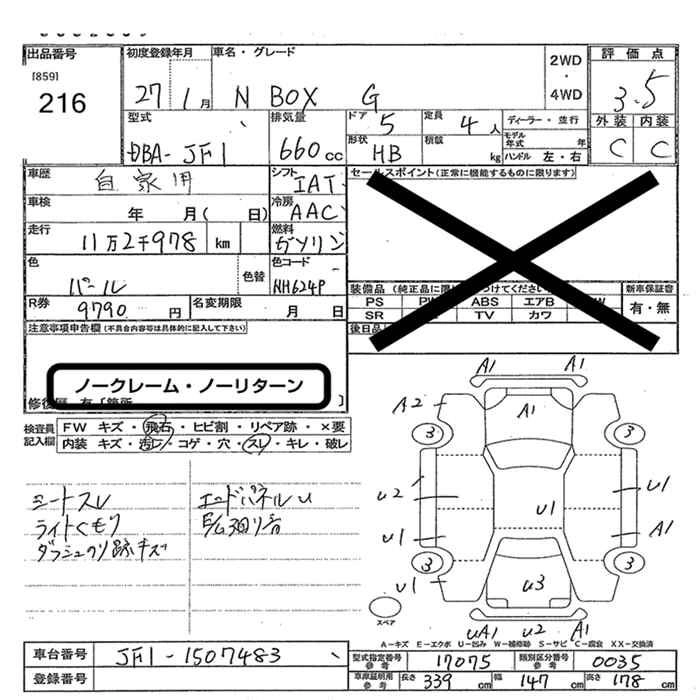 出品番号
[859]
216
初度登録年月
27 1月
車名・グレード
N BOX G
2WD
・
4WD
評価点
3.5
外装 内装
C C
型式
DBA-JF1
排気量
660cc
ドア
5
定員
4人
ディーラー・並行
形状
HB
積載
kg
モデル年式 年
ハンドル 左・右
車歴
自家用
シフト
IAT
セールスポイント(正常に機能するものに限ります)
車検
年 月( 日)
冷房
AAC
走行
11万2千978 km
燃料
ガソリン
色
パール
色替
色コード
NH624P
装備品(純正品に限
つけてください)
新車保証書
PS ABS エアB
有・無
SR TV カワ
後日品
R券
9790円
名変期限
月 日
注意事項申告欄(不具合内容等は具体的に記入して下さい)
ノークレーム・ノーリターン
検査員
記入欄
FW キズ・飛石・ヒビ割・リペア跡・×要
内装 キズ・汚レ・コゲ・穴・スレ・キレ・破レ
シートスレ
ライトくもり
ダッシュのり跡キズ
エンドパネルU
A1 A1
A2 A1
3 3
U2 U1
U1 U1 A1
3 3
U1 U3
UA1 U2 A1
スペア
A-キズ E-エクボ U-凹み W-補修跡 S-サビ C-腐食 XX-交換済
車台番号
JF1-1507483
登録番号
型式指定番号
参考
17075
類別区分番号
参考
0035
車庫証明用
参考
長さ 339cm
幅 147cm
高さ 178cm